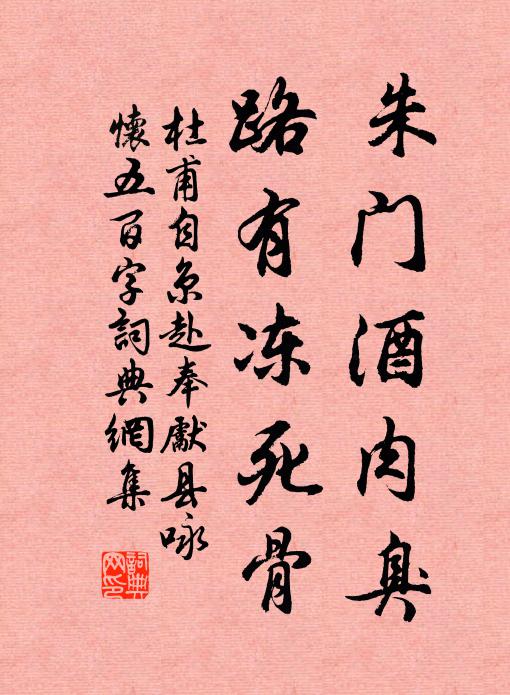 朱门酒肉臭
路有冻死骨
杜甫自京赴奉獻县咏
懷五百字詞典網集
詞典
网印